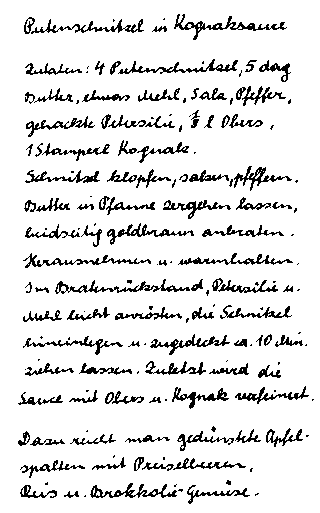 Putenschnitzel in Kognaksauce
Zutaten: 4 Putenschnitzel, 5 dag
Butter, etwas Mehl, Salz, Pfeffer,
gehackte Petersilie, l Obers,
1 Stamperl Kognak.
Schnitzel klopfen, salzen, pfeffern.
Butter in Pfanne zergehen lassen,
beidseitig goldbraun anbraten.
Herausnehmen u. warmhalten.
Im Bratenrückstand, Petersilie u.
Mehl leicht anrösten, die Schnitzel
hineinlegen u. zugedeckt ca. 10 Min.
ziehen lassen. Zuletzt wird die
Sauce mit Obers u. Kognak verfeinert.
Dazu reicht man gedünstete Apfel-
spalten mit Preiselbeeren,
Reis u. Brokkolie-Gemüse.